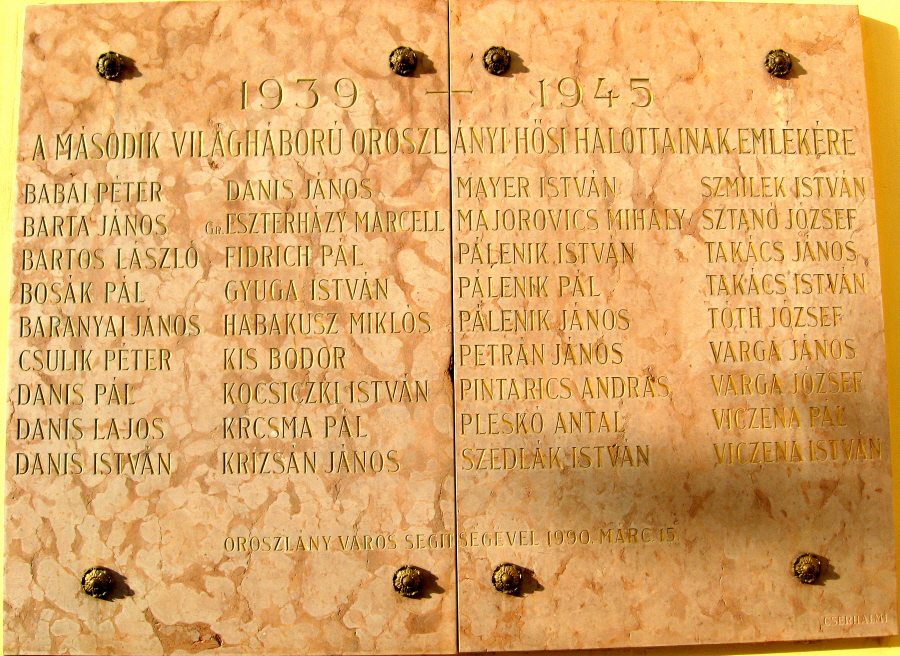 1939 — 1945
A MÁSODIK VILÁGHÁBORÚ OROSZLÁNYI HŐSI HALOTTAINAK EMLÉKÉRE
BABAI PÉTER
BARTA JÁNOS
BARTOS LÁSZLÓ
BOSÁK PÁL
BARANYAI JÁNOS
CSULIK PÉTER
DANIS PÁL
DANIS LAJOS
DANIS ISTVÁN
DANIS JÁNOS
GR. ESZTERHÁZY MARCELL
FIDRICH PÁL
GYUGA ISTVÁN
HABAKUSZ MIKLÓS
KIS BODOR
KOCSICZKI ISTVÁN
KRCSMA PÁL
KRIZSÁN JÁNOS
MAYER ISTVÁN
MAJOROVICS MIHÁLY
PÁLENIK ISTVÁN
PÁLENIK PÁL
PÁLENIK JÁNOS
PETRÁN JÁNOS
PINTARICS ANDRÁS
PLESKÓ ANTAL
SZEDLÁK ISTVÁN
SZMILEK ISTVÁN
SZTANÓ JÓZSEF
TAKÁCS JÁNOS
TAKÁCS ISTVÁN
TÓTH JÓZSEF
VARGA JÁNOS
VARGA JÓZSEF
VICZENA PÁL
VICZENA ISTVÁN
OROSZLÁNY VÁROS SEGÍTSÉGÉVEL 1990. MÁRC. 15.
CSERHALMI